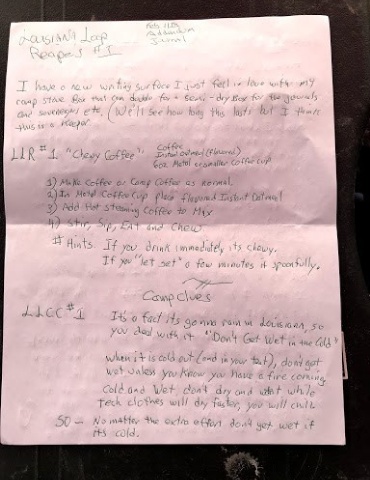 Louisiana Loop
Recipes #1
Feb 11th
Journal
I have a new writing surface I just feel in love with my
camp stove Box that can double for a semi-dry Box for the journals
and etc. (We'll see how long this lasts but I think
this is a keeper.
LLR #1 "Chewy Coffee"
Coffee
Instant oatmeal (flavored)
6oz Metal or smaller coffee cup
1) Make Coffee or Camp Coffee as normal.
2) In Metal Coffee Cup place flavored Instant Oatmeal
3) Add Hot Steaming Coffee to Mix
4) Stir, Sip, Eat and Chew
# Hints. If you drink immediately its chewy.
If you "let set" a few minutes it spoonfully.
Camp Clues
LLCC #1
It's a fact its gonna rain in Louisiana, so
you deal with it "Don't Get Wet in the Cold"
when it is cold out (and in your tent), don't get
wet unless you know you have a fire coming
Cold and Wet, don't dry and while
Tech clothes will dry faster, you will chill
SO - No matter the extra effort don't get wet if
its cold.